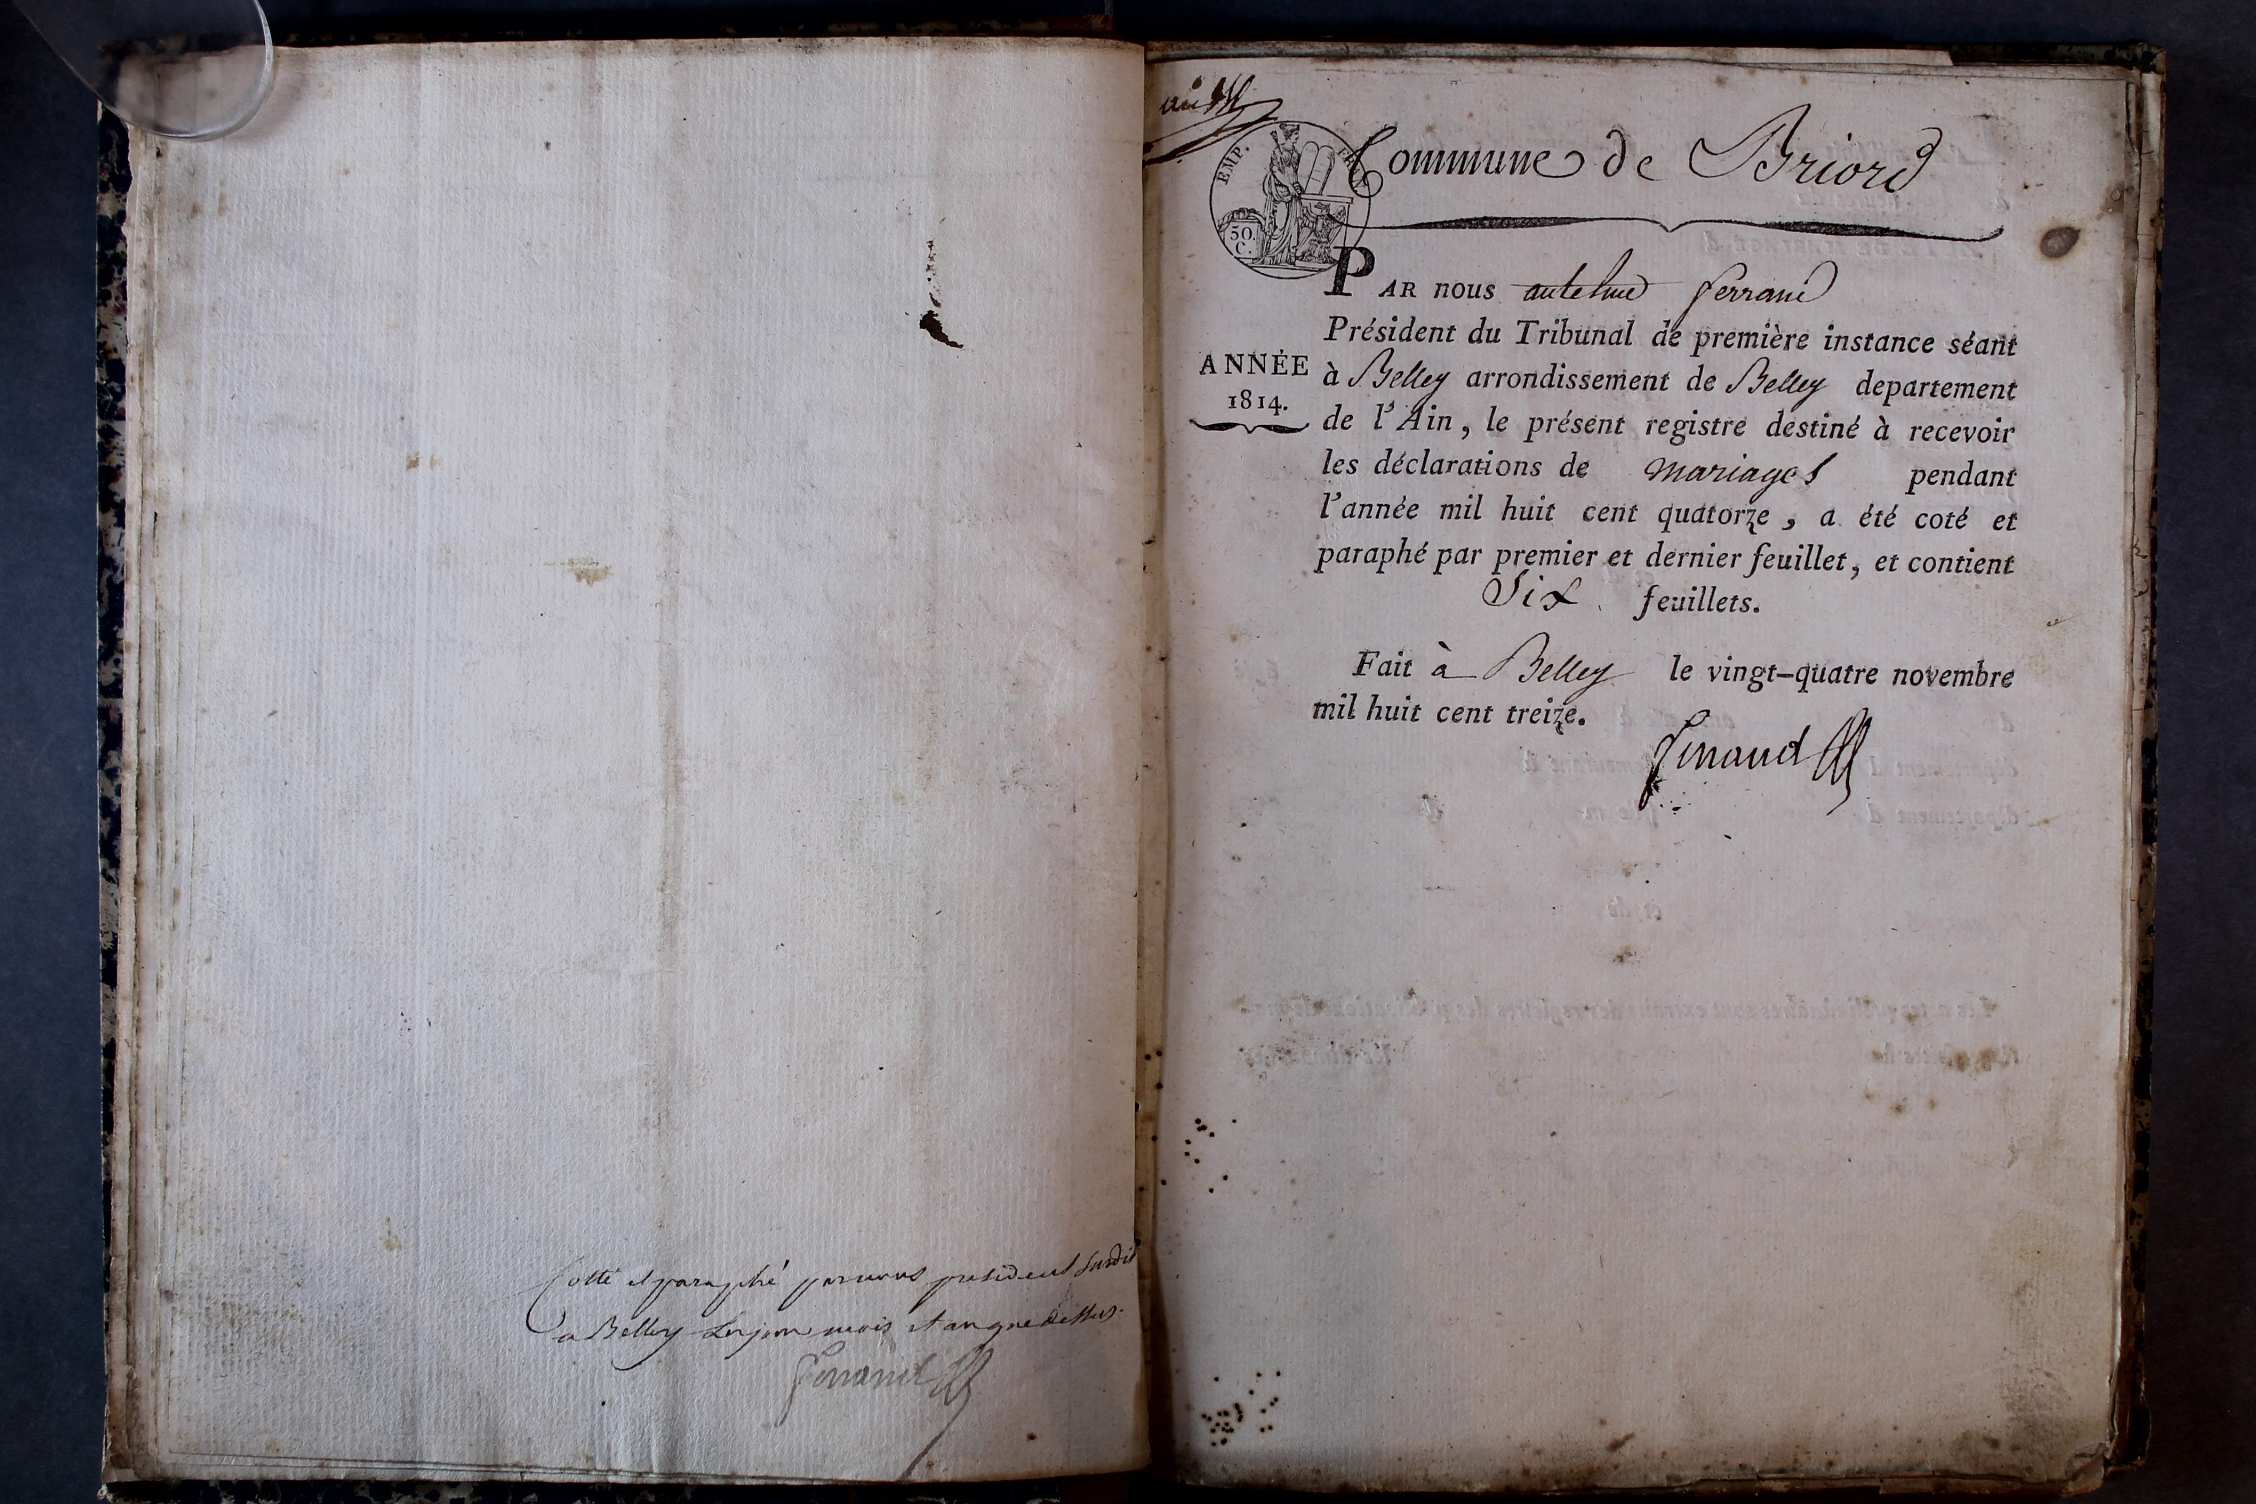 Cotté et paraphé par nous président susdit
a Belley les jour mois et an que dessus.
Ferrand
EMP. FR.
50. C.
Commune de Briord
ANNÉE
1814.
PAR nous antelme ferrand
Président du Tribunal de première instance séant
à Belley arrondissement de Belley departement
de l'Ain, le présent registre destiné à recevoir
les déclarations de mariages pendant
l'année mil huit cent quatorze, a été coté et
paraphé par premier et dernier feuillet, et contient
Six feuillets.
Fait à Belley le vingt-quatre novembre
mil huit cent treize.
Ferrand